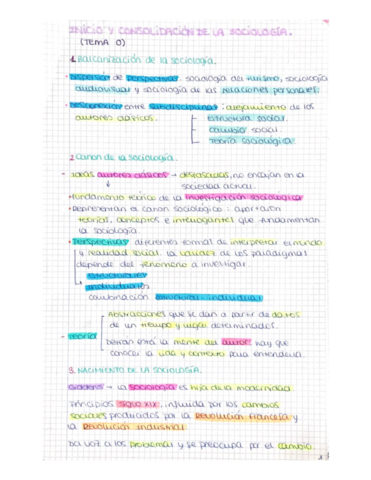 INICIO Y CONSOLIDACIÓN DE LA SOCIOLOGÍA.
(TEMA 0)
1. Balcanización de la sociología.
• Dispersión de perspectivas: sociología del turismo, sociología
audiovisual y sociología de las relaciones personales.
• Desconexión entre subdisciplinas: alejamiento de los
autores clásicos.
estructura social.
cambio social.
teoría sociológica.
2. Canon de la sociología.
- Ideas autores clásicos → desfasadas, no encajan en la
sociedad actual.
• Fundamento teórico de la investigación sociológica
• Representan el canon sociológico: aportan
teorías, conceptos e interrogantes que fundamentan
la sociología.
• Perspectivas diferentes formas de interpretar el mundo
y realidad social. La validez de los paradigmas
depende del fenómeno a investigar.
estructurales
individuales
combinación estructural-individual
- Teorías
Abstracciones que se dan a partir de datos
de un tiempo y lugar determinados.
Detrás está la mente del autor, hay que
conocer la vida y contexto para entenderla.
3. NACIMIENTO DE LA SOCIOLOGÍA.
Giddens → La sociología es hija de la modernidad.
Principios siglo XIX, influida por los cambios
sociales producidos por la Revolución Francesa y
la Revolución Industrial.
Da voz a los problemas y se preocupa por el cambio.